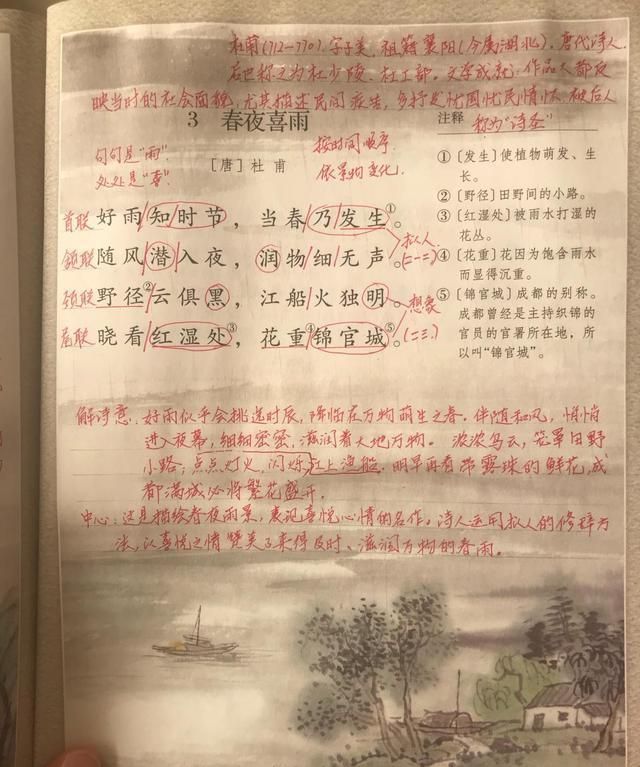 杜甫(712-770),字子美,祖籍襄阳(今属湖北),唐代诗人,
后世称之为杜少陵、杜工部。文学成就:作品大都反
映当时的社会面貌,尤其描述民间疾生,多抒发忧国忧民情怀,被后人
称为"诗圣"
3 春夜喜雨
[唐]杜 甫
句句是"雨"
处处是"喜"
按时间顺序
依景物变化.
首联 好雨/知/时节,当春/乃/发生①。
颔联 随风/潜/入夜,润物/细/无声。
拟人
(二一二)
颈联 野径②/云俱黑,江船/火独明。
想象
尾联 晓看/红湿处③,花重④/锦官城⑤。
(二三)
注释
①〔发生〕使植物萌发、生
长。
②〔野径〕田野间的小路。
③〔红湿处〕被雨水打湿的
花丛。
④〔花重〕花因为饱含雨水
而显得沉重。
⑤〔锦官城〕成都的别称。
成都曾经是主持织锦的
官员的官署所在地,所
以叫"锦官城"。
解诗意:好雨似乎会挑选时辰,降临在万物萌生之春。伴随和风,悄悄
进入夜幕,细细密密,滋润着大地万物。浓浓乌云,笼罩田野
小路;点点灯火,闪烁江上渔船。明早再看带露珠的鲜花,成
都满城必将繁花盛开。
中心:这是描绘春夜雨景,表现喜悦心情的名作。诗人运用拟人的修辞方
法,以喜悦之情赞美了来得及时、滋润万物的春雨。